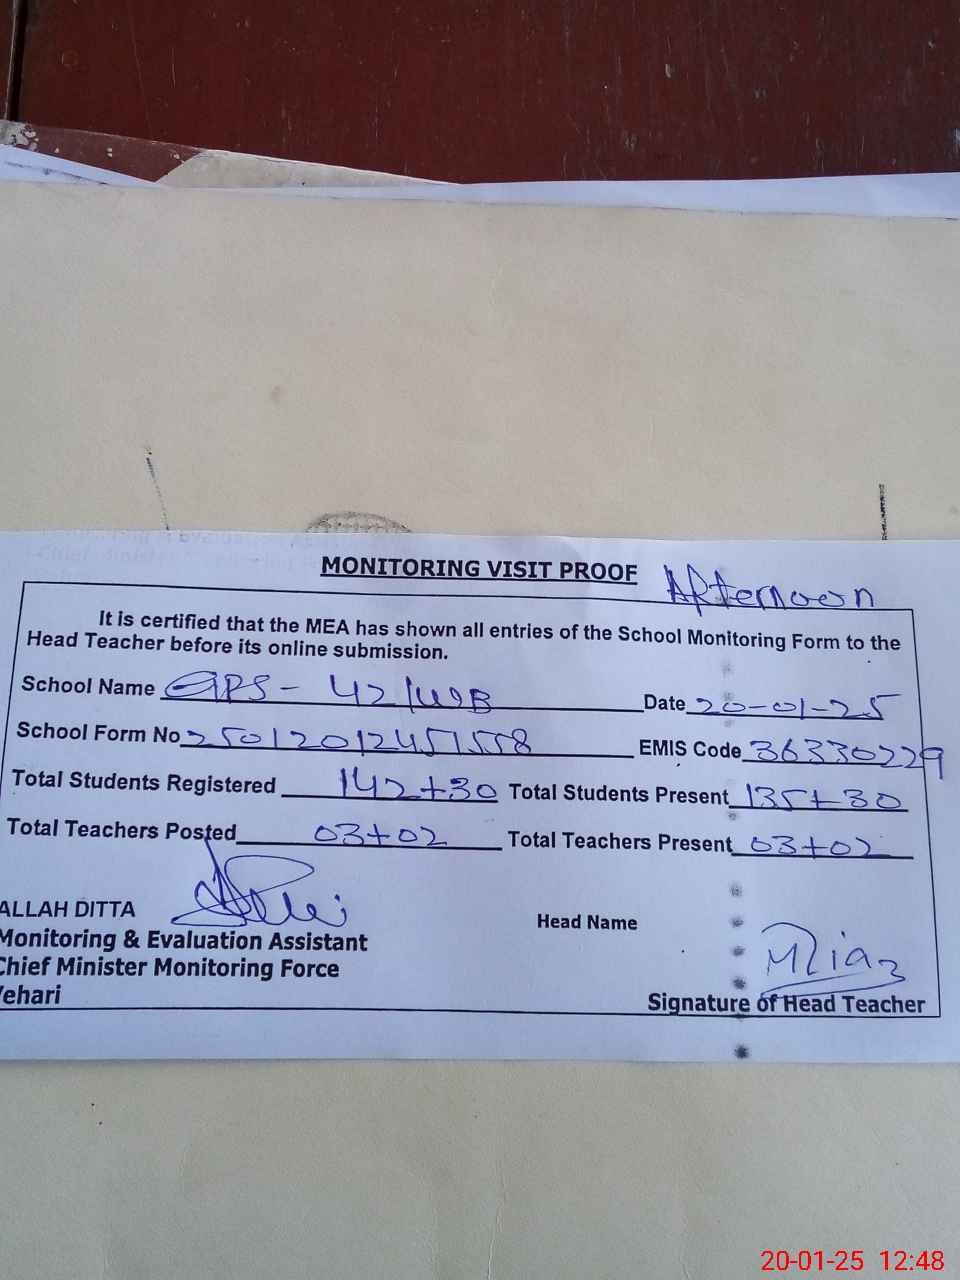 MONITORING VISIT PROOF Afternoon
It is certified that the MEA has shown all entries of the School Monitoring Form to the
Head Teacher before its online submission.
School Name GPS - 42/WB Date 20-01-25
School Form No 25012012451558 EMIS Code 36330229
Total Students Registered 142+30 Total Students Present 135+30
Total Teachers Posted 03+02 Total Teachers Present 03+02
ALLAH DITTA
Monitoring & Evaluation Assistant
Chief Minister Monitoring Force
Vehari
Head Name
MRiaz
Signature of Head Teacher
20-01-25 12:48